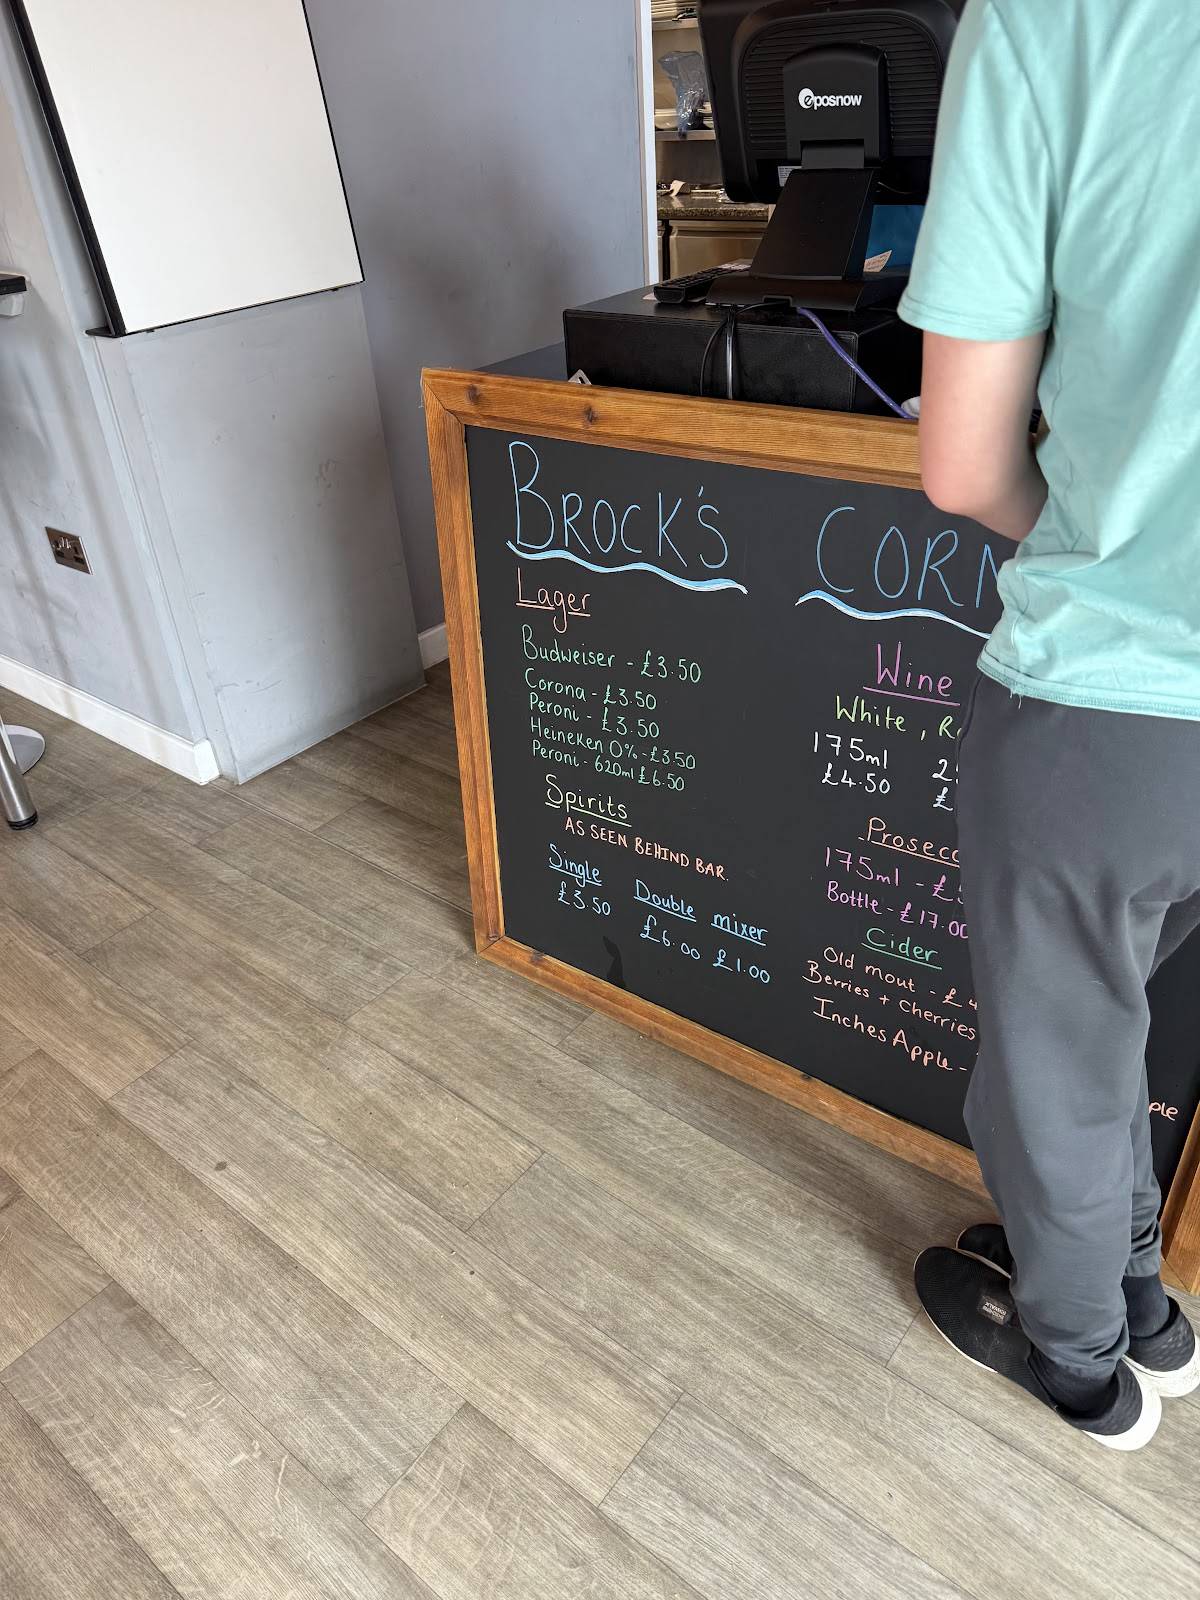 eposnow
BROCK'S CORN
Lager
Budweiser - £3.50
Corona - £3.50
Peroni - £3.50
Heineken 0% - £3.50
Peroni - 620ml £6.50
Spirits
AS SEEN BEHIND BAR.
Single Double mixer
£3.50 £6.00 £1.00
Wine
White,
175ml
£4.50 £
Prosecc
175ml - £
Bottle - £17.00
Cider
Old mout - £4
Berries + cherries
Inches Apple -
ple